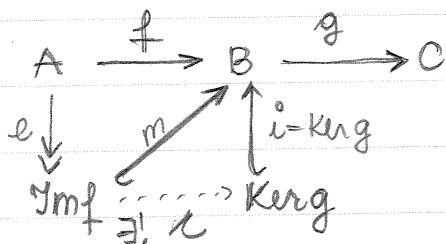 f g
A B C
e m i=Kerg
Imf Kerg
∃! r